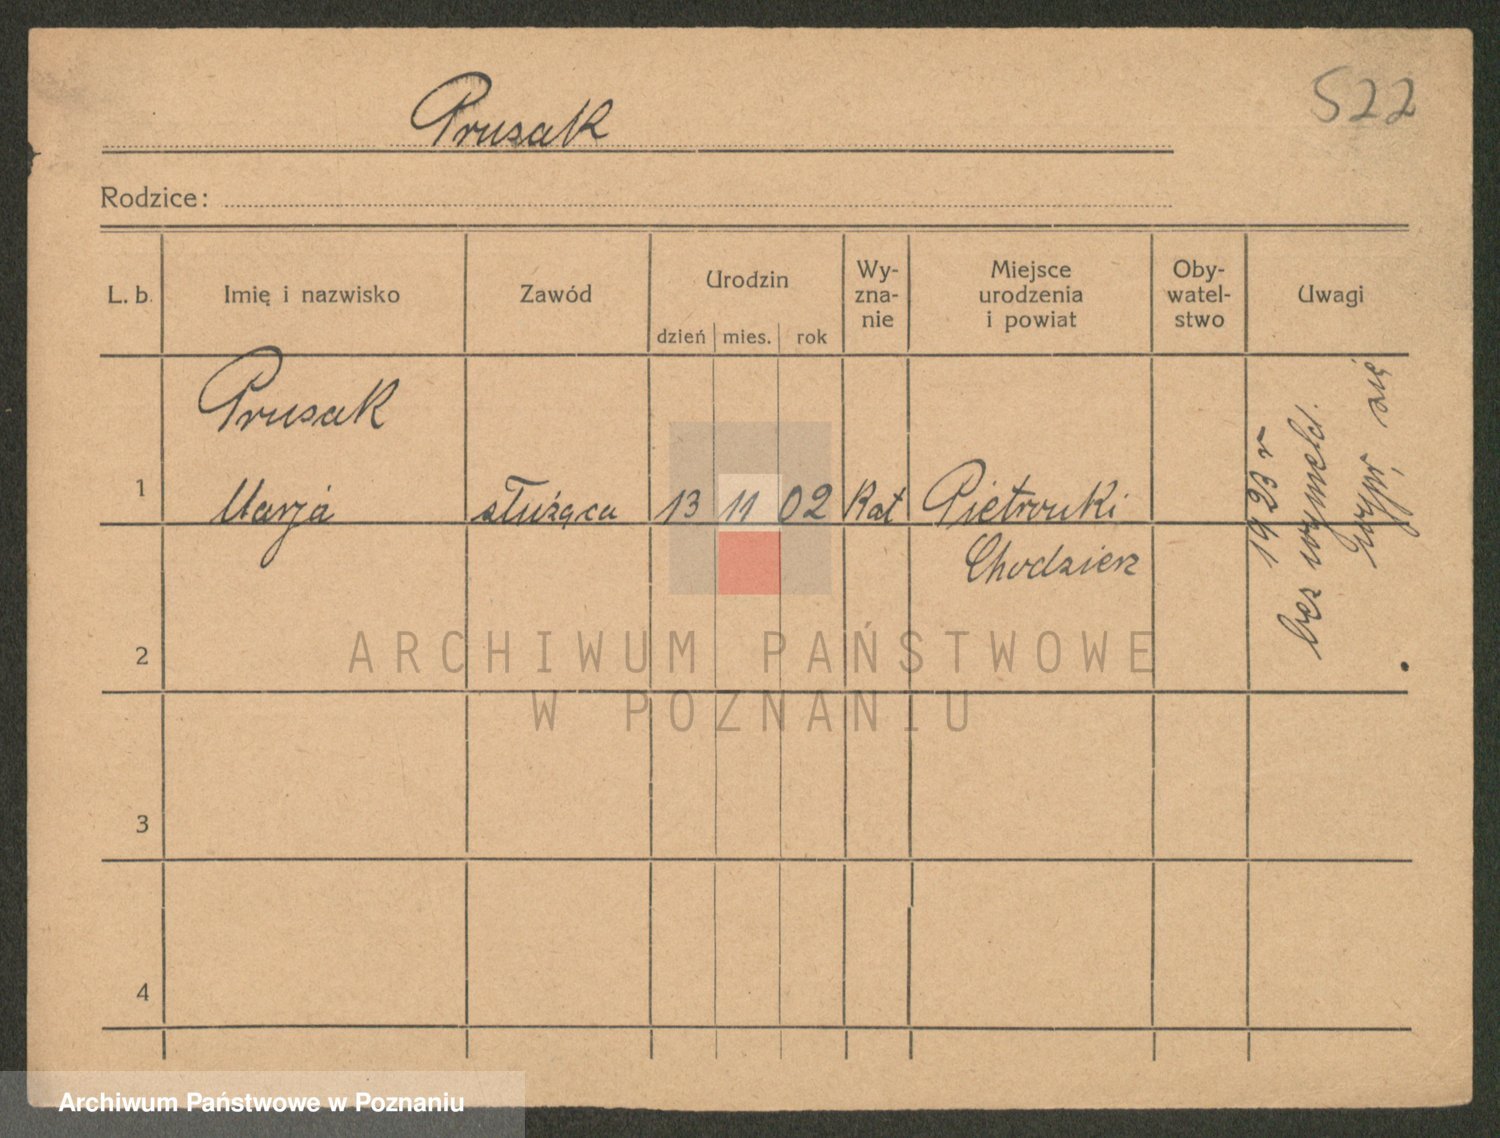 522
Prusak
Rodzice:
L. b. Imię i nazwisko Zawód Urodzin dzień mies. rok Wy-zna-nie Miejsce urodzenia i powiat Oby-watel-stwo Uwagi
Prusak
1 Marja służąca 13 11 02 Kat Pietronki
Chodzież
1923 r
bez wymeld.
wypr. się
2
3
4
ARCHIWUM PAŃSTWOWE
W POZNANIU
Archiwum Państwowe w Poznaniu